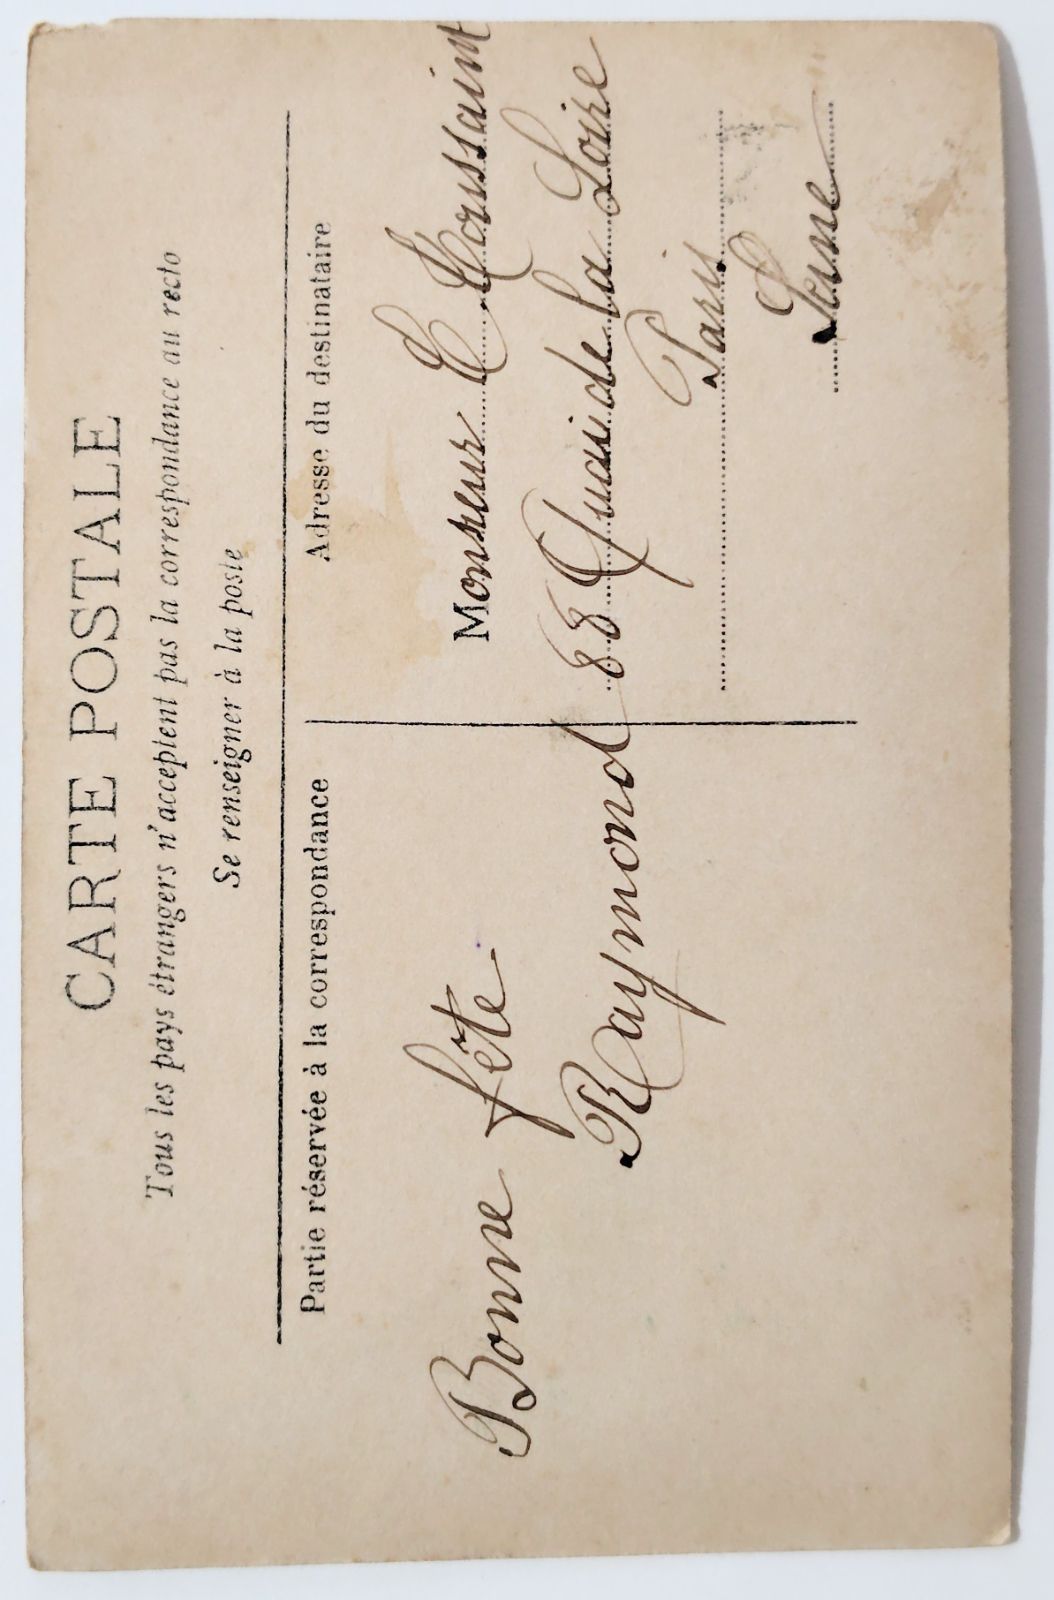 CARTE POSTALE
Tous les pays étrangers n'acceptent pas la correspondance au recto
Se renseigner à la poste
Partie réservée à la correspondance
Bonne fête
Raymond
Adresse du destinataire
Monsieur E Toussaint
88 Quai de la Loire
Paris
Seine